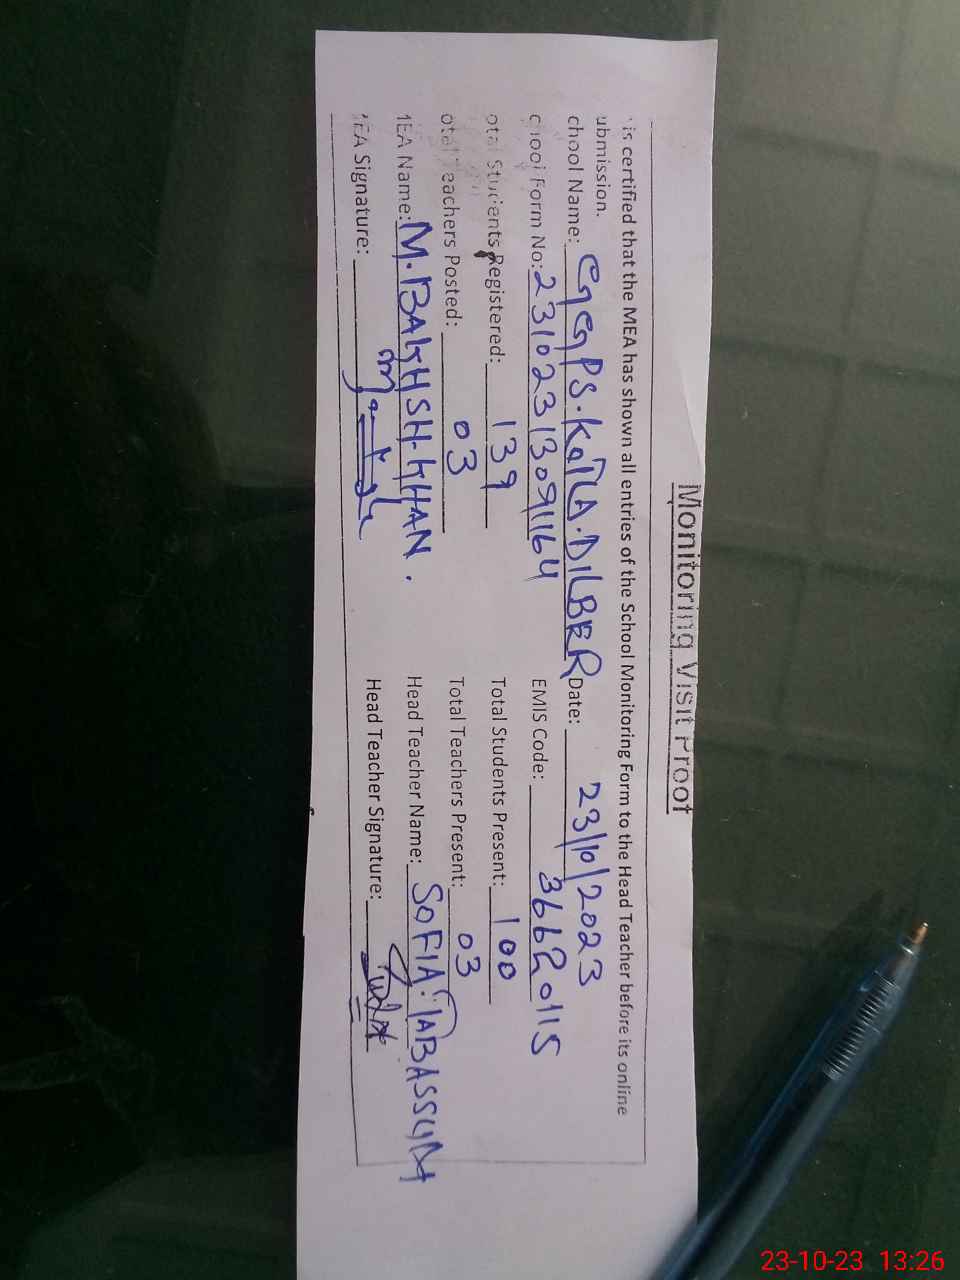 Monitoring Visit Proof
is certified that the MEA has shown all entries of the School Monitoring Form to the Head Teacher before its online
ubmission.
chool Name: GGPS. KOTLA. DILBER Date: 23/10/2023
chool Form No: 23102313091164 EMIS Code: 36620115
otal Students Registered: 139 Total Students Present: 100
otal Teachers Posted: 03 Total Teachers Present: 03
MEA Name: M. BAKHSH. KHAN. Head Teacher Name: SOFIA. TABASSUM
MEA Signature: Head Teacher Signature:
23-10-23 13:26